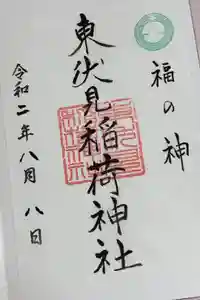 福の神
東伏見稲荷神社
令和二年八月八日